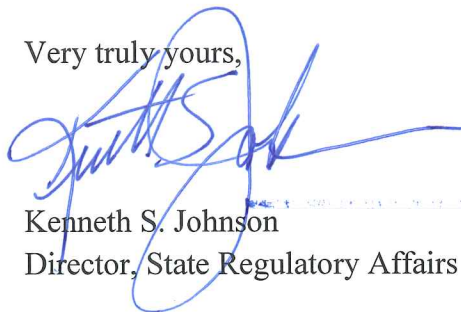 Very truly yours,
Kenneth S. Johnson
Director, State Regulatory Affairs